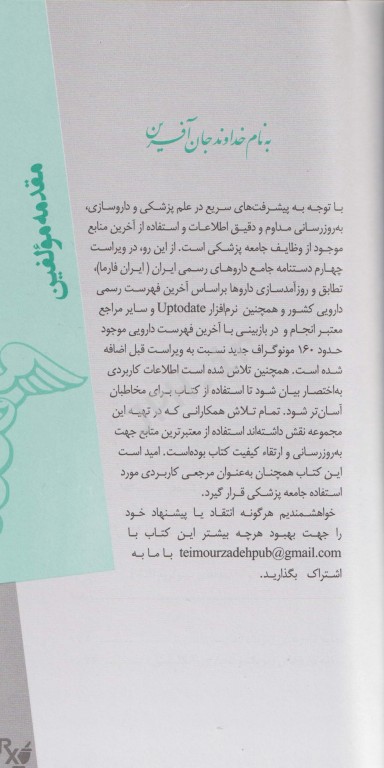 به نام خداوند جان آفرین
مقدمه مؤلفین
با توجه به پیشرفت‌های سریع در علم پزشکی و داروسازی،
به‌روزرسانی مداوم و دقیق اطلاعات و استفاده از آخرین منابع
موجود از وظایف جامعه پزشکی است. از این رو، در ویراست
چهارم دستنامه جامع داروهای رسمی ایران (ایران فارما)،
تطابق و روزآمدسازی داروها براساس آخرین فهرست رسمی
دارویی کشور و همچنین نرم‌افزار Uptodate و سایر مراجع
معتبر انجام و در بازبینی با آخرین فهرست دارویی موجود
حدود ۱۶۰ مونوگراف جدید نسبت به ویراست قبل اضافه
شده است. همچنین تلاش شده است اطلاعات کاربردی
به‌اختصار بیان شود تا استفاده از کتاب برای مخاطبان
آسان‌تر شود. تمام تلاش همکارانی که در تهیه این
مجموعه نقش داشته‌اند استفاده از معتبرترین منابع جهت
به‌روزرسانی و ارتقاء کیفیت کتاب بوده‌است. امید است
این کتاب همچنان به‌عنوان مرجعی کاربردی مورد
استفاده جامعه پزشکی قرار گیرد.
خواهشمندیم هرگونه انتقاد یا پیشنهاد خود
را جهت بهبود هرچه بیشتر این کتاب با
teimourzadehpub@gmail.com با ما به
اشتراک بگذارید.
Rx